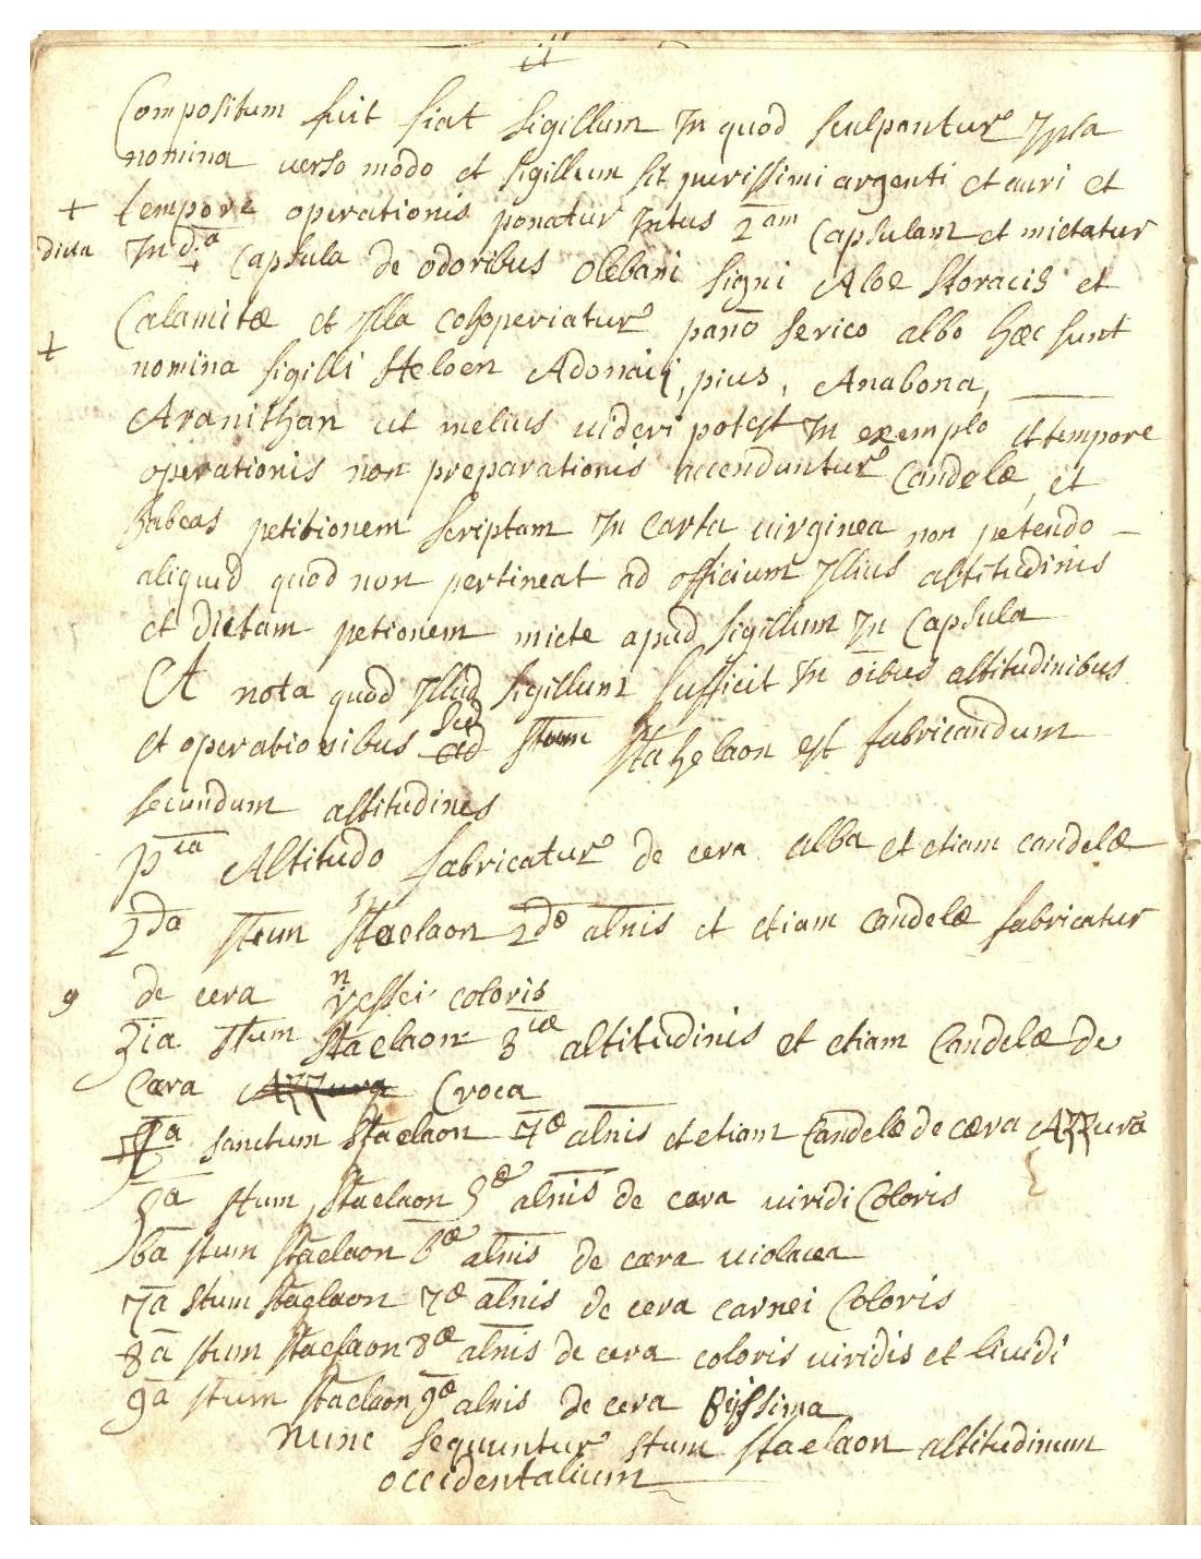 Compositum fuit fiat sigillum In quod sculpantur Ipsa
nomina verso modo et sigillum sit purissimi argenti et auri et
+ tempore operationis ponatur Intus 2am Capsulam et mictatur
dicta In d.a Capsula de odoribus olebani ligni Aloe Storacis et
Calamitæ et Ylla cohoperiatur pano serico albo hæc sunt
+ nomina sigilli Heloen Adonaij, pius, Anabona,
Aranithan ut melius uideri potest In exemplo et tempore
operationis non preparationis accenduntur Candelæ, et
habeas petitionem scriptam In carta uirginea non petendo
aliquid quod non pertineat ad officium Yllius altitudinis
et dictam petionem micte apud sigillum In Capsula
Et nota quod Yllud sigillum sufficit In oibus altitudinibus
et operationibus ad sed stum stahelaon est fabricandum
secundum altitudines
pia Altitudo fabricatur de cera alba et etiam candelæ
2da stum staelaon 2dæ altnis et etiam candelæ fabricatur
9 de cera coloris
3ia stum staelaon 3iæ altitudinis et etiam Candelæ de
Cæra Azzura Croca
4a sanctum staelaon 4æ altnis et etiam Candelæ de cæra Azzura
5a stum staelaon 5æ altnis de cæra uiridi Coloris
6a stum staelaon 6æ altnis de cæra uiolacea
7a stum staelaon 7æ altnis de cera carnei Coloris
8a stum staelaon 8æ altnis de cera coloris uiridis et liuidi
9a stum staelaon 9æ altnis de cera
nunc sequuntur stum staelaon altitudinum
occidentalium